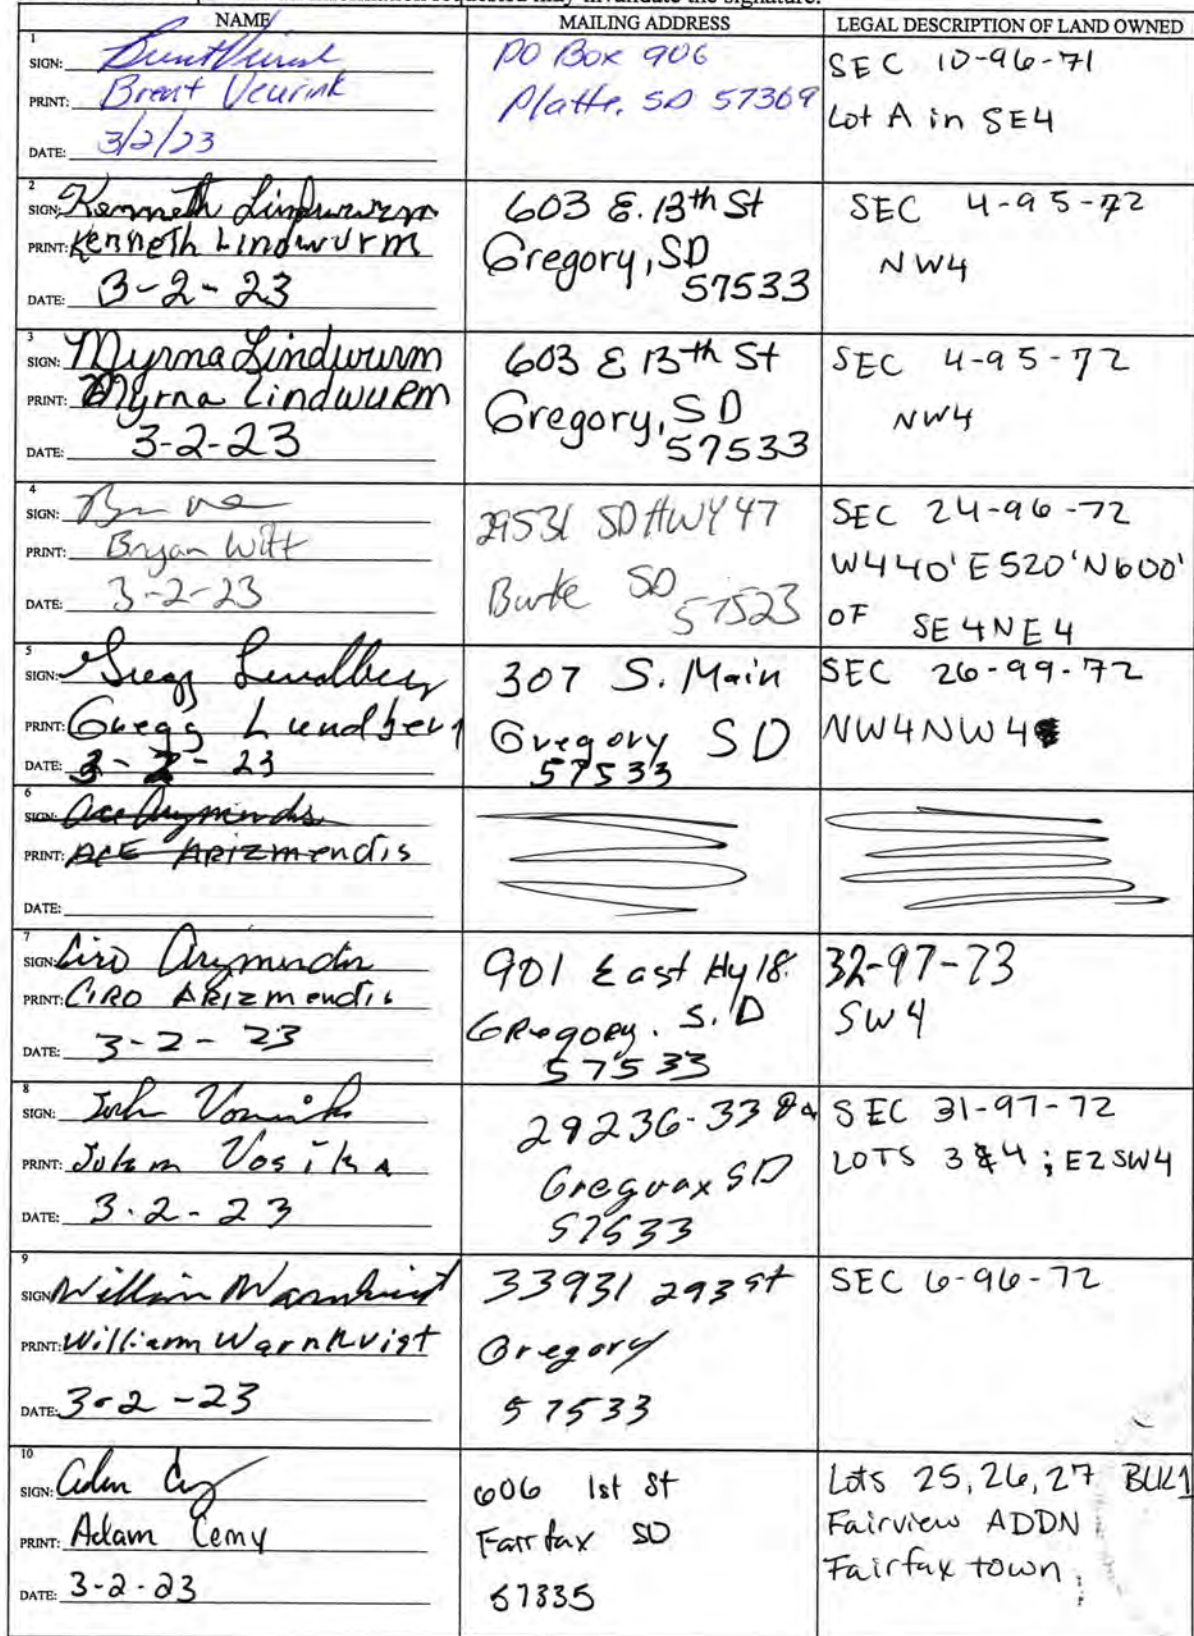 information requested may invalidate the signature.
NAME MAILING ADDRESS LEGAL DESCRIPTION OF LAND OWNED
1
SIGN: Brent Veurink
PRINT: Brent Veurink
DATE: 3/2/23
PO Box 906
Platte, SD 57369
SEC 10-96-71
Lot A in SE4
2
SIGN: Kenneth Lindwurm
PRINT: Kenneth Lindwurm
DATE: 3-2-23
603 E. 13th St
Gregory, SD
57533
SEC 4-95-72
NW4
3
SIGN: Myrna Lindwurm
PRINT: Myrna Lindwurm
DATE: 3-2-23
603 E 13th St
Gregory, SD
57533
SEC 4-95-72
NW4
4
SIGN:
PRINT: Bryan Witt
DATE: 3-2-23
29531 SD HWY 47
Burke SD
57523
SEC 24-96-72
W440' E520' N600'
OF SE4NE4
5
SIGN: Gregg Lundberg
PRINT: Gregg Lundberg
DATE: 3-2-23
307 S. Main
Gregory SD
57533
SEC 26-99-72
NW4NW4
6
SIGN: Ace Arizmendis
PRINT: ACE ARIZMendis
DATE:
7
SIGN: Ciro Arizmendis
PRINT: CIRO ARIZMendis
DATE: 3-2-23
901 East Hy 18.
GRegoRy. S.D
57533
32-97-73
SW4
8
SIGN: John Vosika
PRINT: John Vosika
DATE: 3-2-23
29236-338
SD
57533
SEC 31-97-72
LOTS 3 & 4; E2SW4
9
SIGN: William Warnkvist
PRINT: William Warnkvist
DATE: 3-2-23
33931 293 st
Gregory
57533
SEC 6-96-72
10
SIGN:
PRINT: Adam Cerny
DATE: 3-2-23
606 1st St
Fairfax SD
57335
Lots 25, 26, 27 BLK1
Fairview ADDN
Fairfax town